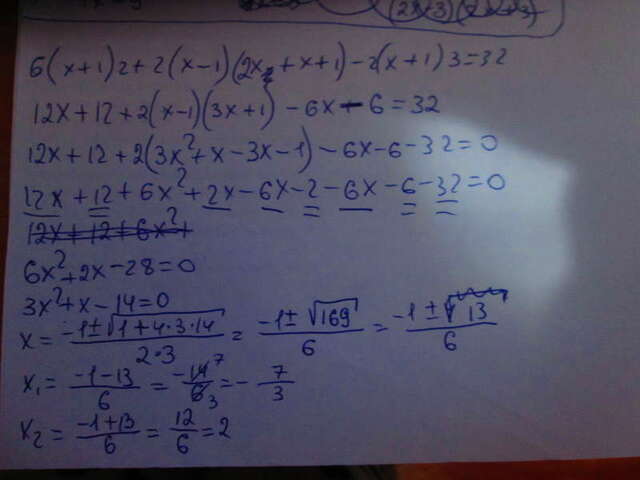 6(x+1)2+2(x-1)(2x+x+1)-2(x+1)3=32
12x+12+2(x-1)(3x+1)-6x-6=32
12x+12+2(3x²+x-3x-1)-6x-6-32=0
12x+12+6x²+2x-6x-2-6x-6-32=0
12x+12+6x²+
6x²+2x-28=0
3x²+x-14=0
x = (-1±√(1+4·3·14))/(2·3) = (-1±√169)/6 = (-1±√13)/6
x₁ = (-1-13)/6 = -14/6 7 3 = -7/3
x₂ = (-1+13)/6 = 12/6 = 2